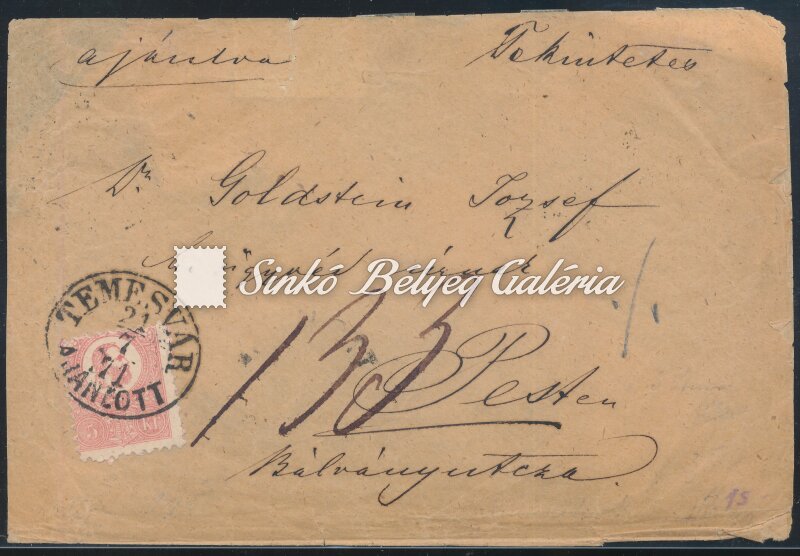 ajánlva
Tekintetes
Dr Goldstein József
úrnak
Sinkó Bélyeg Galéria
TEMESVÁR
21
7
71
AJÁNLOTT
133
Pesten
Bálványutcza.
5 KR
15